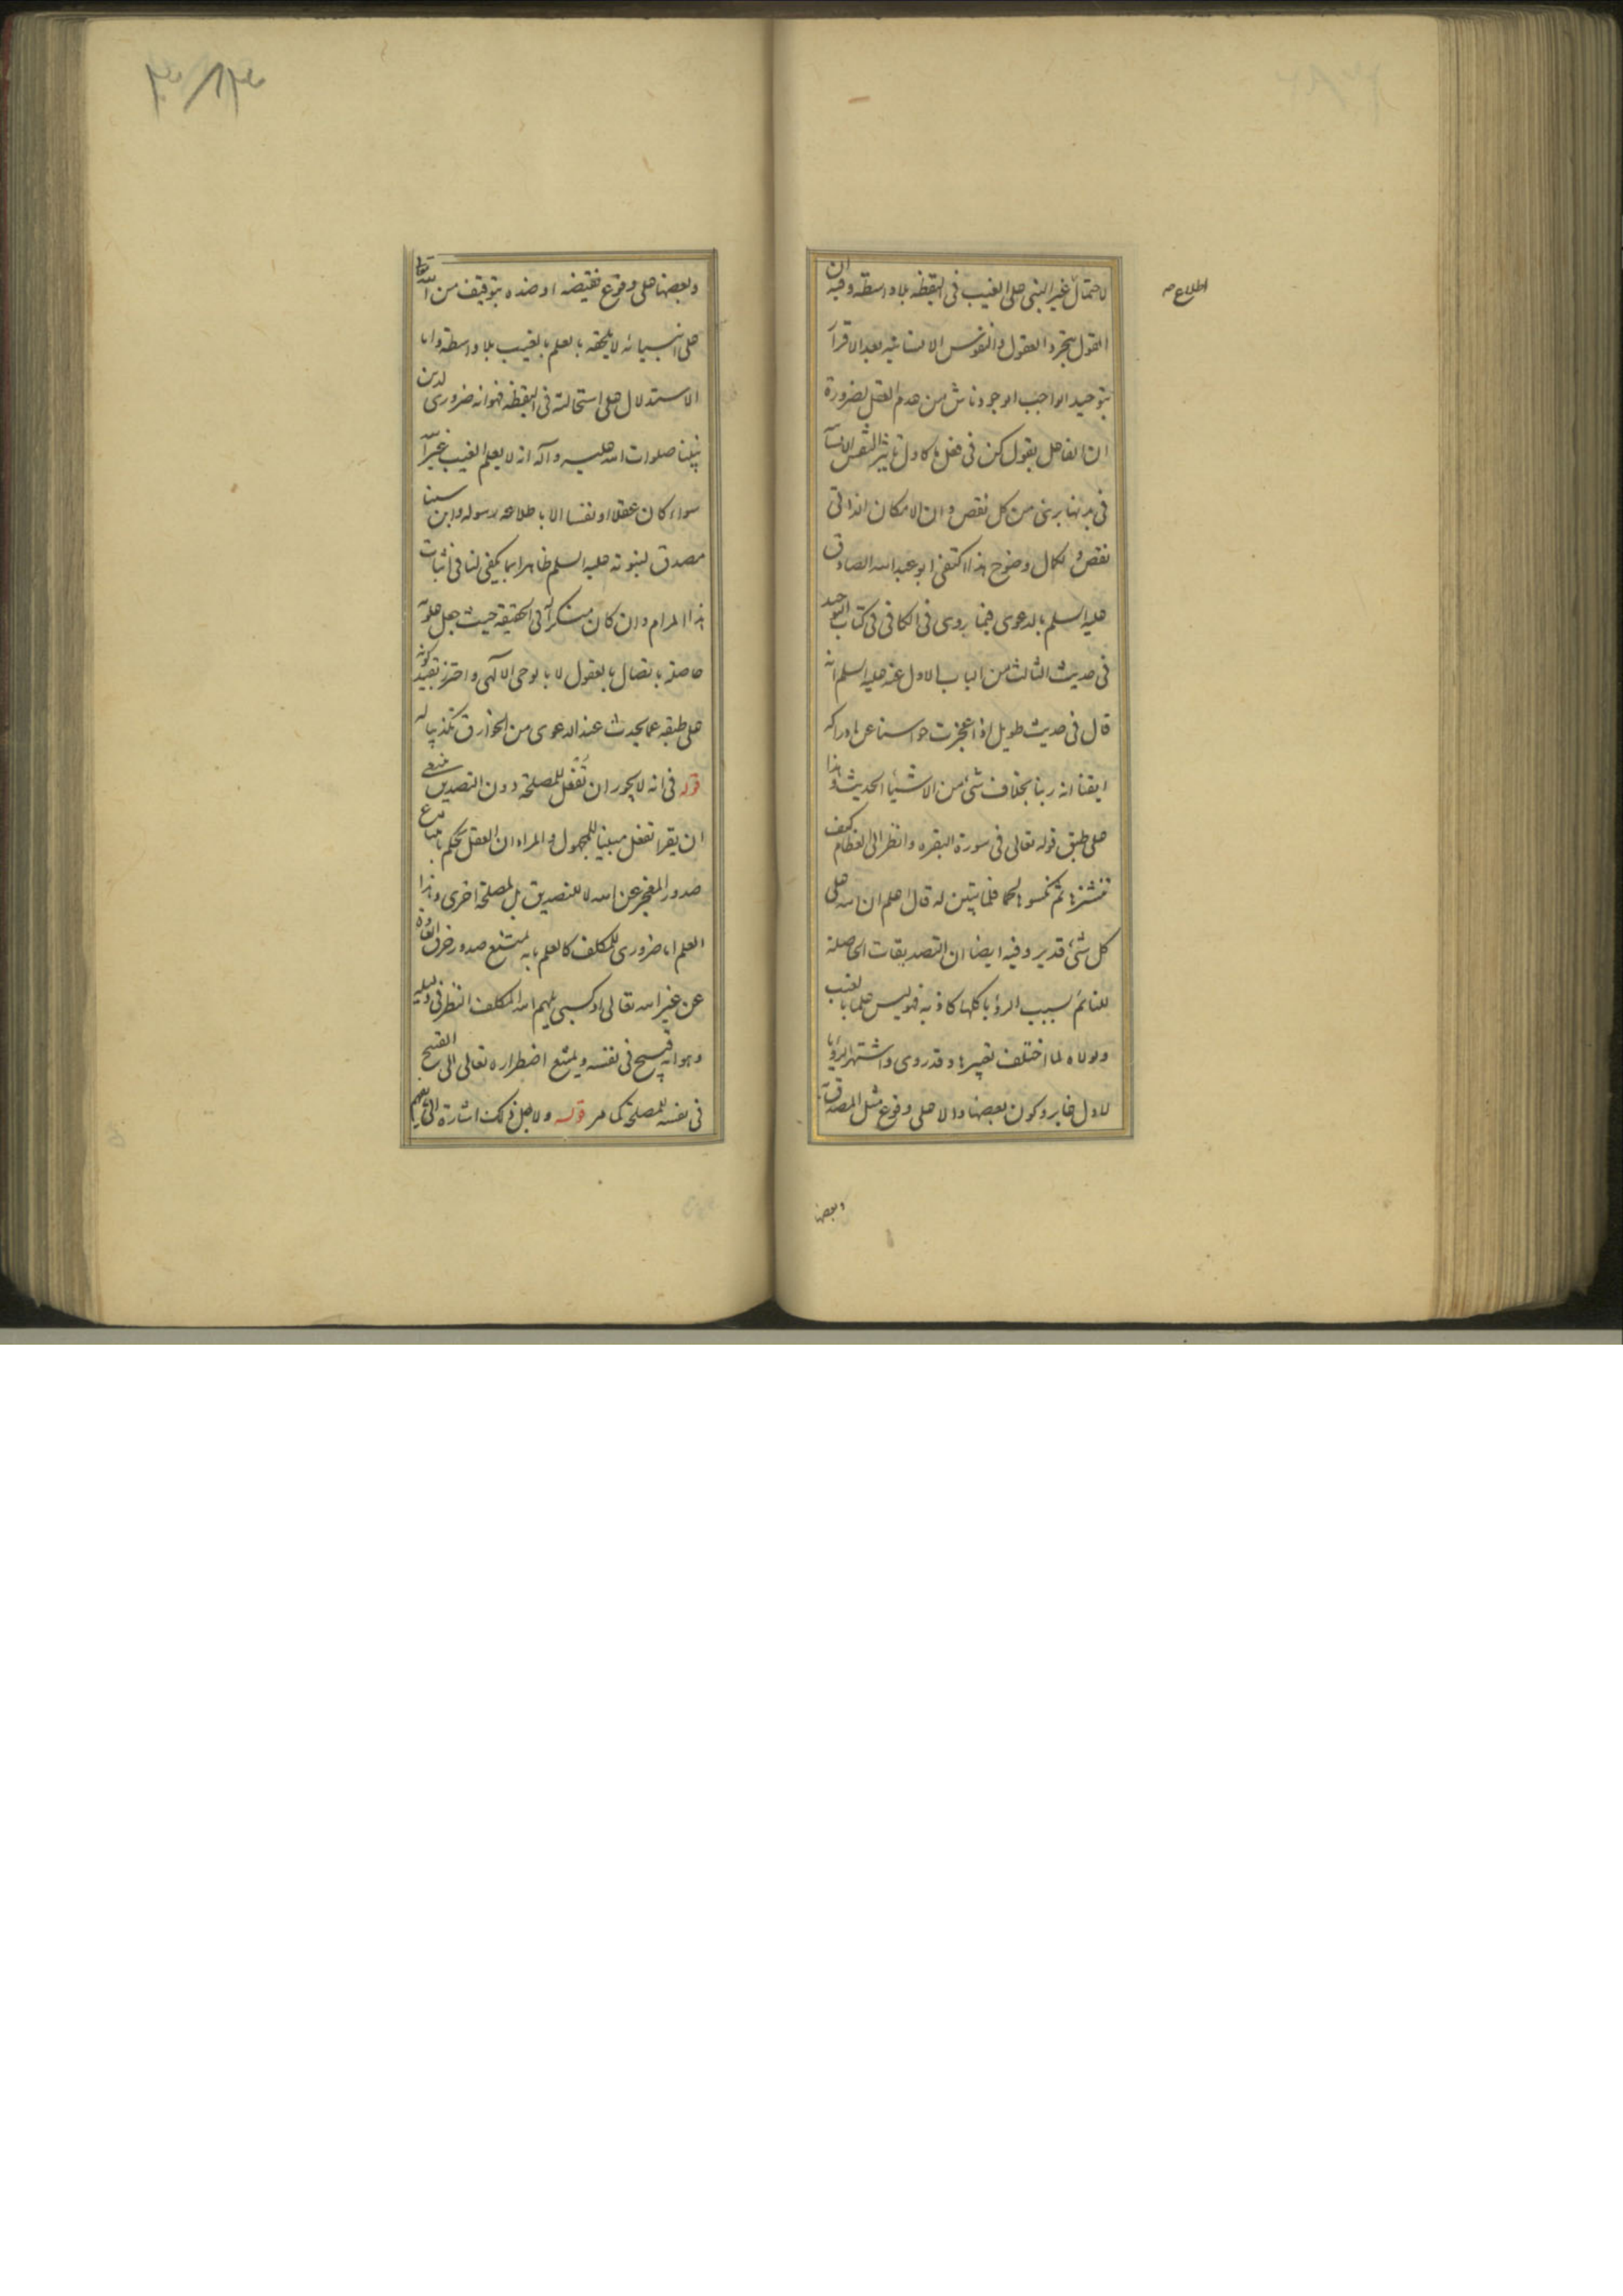 لاحتمال غير النبي على الغيب في اليقظة بلا واسطة وفيه ان
اطلاع صح
القول بتجرد العقول والنفوس الانسانية بعد الاقرار
بتوحيد الواجب الوجود ناش من عدم العقل لضرورة
ان الفاعل بقول كن في فعل ما كاول تاثير النفس الانسا
في بدنها برئ من كل نقص وان الامكان الذاتي
نقص ولكمال وضوح هذا اكتفى ابو عبد الله الصادق
عليه السلم بالدعوى فيما روى في الكافي في كتاب التوحيد
في حديث الثالث من الباب الاول عنه عليه السلم انه
قال في حديث طويل اذا عجزت حواسنا عن ادراكه
ايقنا انه ربنا بخلاف شئ من الاشياء الحديث وهذا
على طبق قوله تعالى في سورة البقره وانظر الى العظام كيف
ننشزها ثم نكسوها لحما فلما تبين له قال اعلم ان الله على
كل شئ قدير وفيه ايضا ان التصديقات الحاصلة
للنائم بسبب الرؤيا كلها كاذبة فهو ليس علما بالغيب
ولولاه لما اختلف تعبيرها وقد روى واشتهر الرؤيا
لاول عابر وكون بعضها دالا على وقوع مثل المصدق به
وبعضها
وبعضها على وقوع نقيضه او ضده بتوقيف من الله تعالى
على انبيائه لا يلحقه بالعلم بالغيب بلا واسطة واما
الاستدلال على استحالته في اليقظة فهو انه ضروري لدين
نبينا صلوات الله عليه وآله انه لا يعلم الغيب غير الله
سواء كان عقلا او نفسا الا باطلاعه رسوله وابن سينا
مصدق لنبوته عليه السلم ظاهرا بما يكفي لنا في اثبات
هذا المرام وان كان منكرا له في الحقيقة حيث جعل علومه
حاصلة باتصال بالعقول لا بالوحي الالهي واحترز بقيد كونه
على طبقه عما يحدث عند الدعوى من الخوارق تكذيبا له
قوله في انه لا يجوز ان تفعل للمصلحة دون التصديق ينبغي
ان يقرا تفعل مبنيا للمجهول والمراد ان العقل يحكم بامتناع
صدور المعجز عن الله لا للتصديق بل لمصلحة اخرى وهذا
العلم اما ضروري للمكلف كالعلم بانه يمتنع صدور خرق العادة
عن غير الله تعالى او كسبي يلهم الله المكلف النظر في دليله
وهو انه قبيح في نفسه ويمتنع اضطراره تعالى الى القبيح
في نفسه للمصلحة كما مر قوله ولاجل ذلك اشارة الى